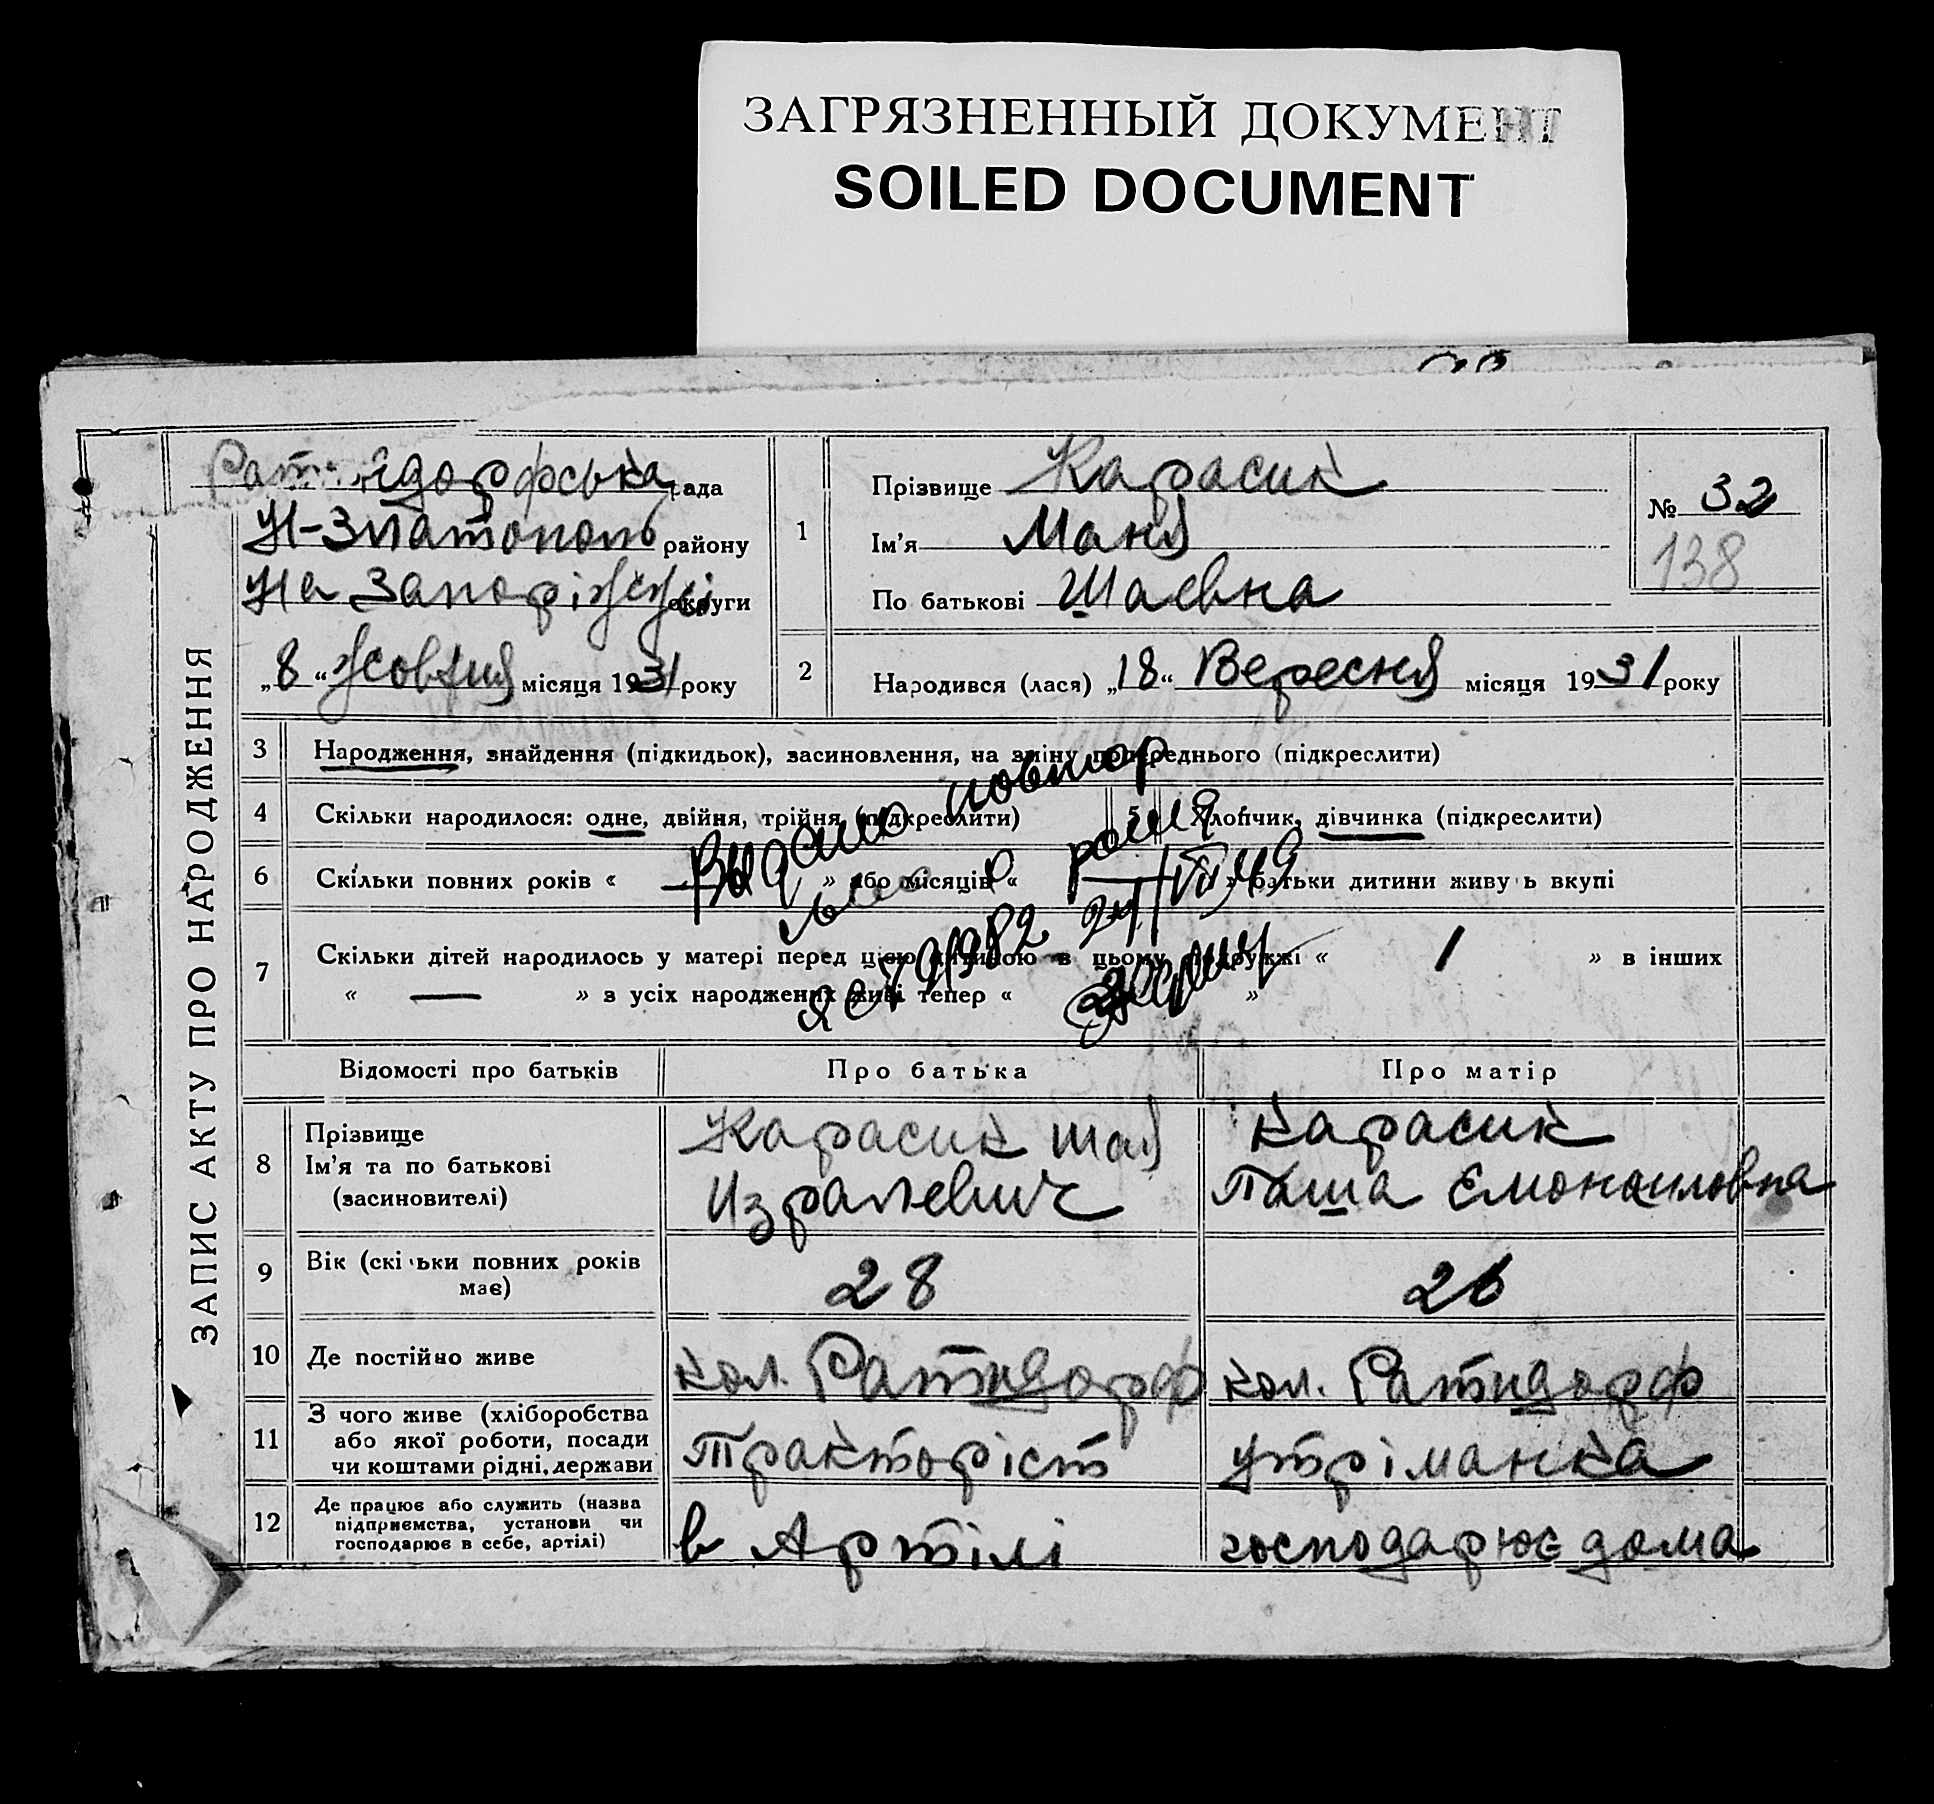 ЗАГРЯЗНЕННЫЙ ДОКУМЕНТ
SOILED DOCUMENT
ЗАПИС АКТУ ПРО НАРОДЖЕННЯ
рада
Н-Златополь району
На Запоріжжі округи
„8“ Жовтня місяця 1931 року
1
Прізвище Карасик
Ім'я Маня
По батькові Шаевна
№ 32
138
2 Народився (лася) „18“ Вересня місяця 1931 року
3 Народження, знайдення (підкидьок), засиновлення, на зміну попереднього (підкреслити)
4 Скільки народилося: одне, двійня, трійня (підкреслити) 5 Хлопчик, дівчинка (підкреслити)
6 Скільки повних років « — » або місяців « — » батьки дитини живуть вкупі
7 Скільки дітей народилось у матері перед цією дитиною в цьому подружжі « 1 » в інших
« — » з усіх народжених живі тепер « »
Выдано повтор
Відомості про батьків Про батька Про матір
8 Прізвище
Ім'я та по батькові
(засиновителі)
Карасик Шая
Израилевич
Карасик
Паша
9 Вік (скільки повних років
має)
28 26
10 Де постійно живе кол. Ратндорф кол. Ратндорф
11 З чого живе (хліборобства
або якої роботи, посади
чи коштами рідні, держави
Тракторіст утріманка
12 Де працює або служить (назва
підприємства, установи чи
господарює в себе, артілі)
в Артілі господарює дома